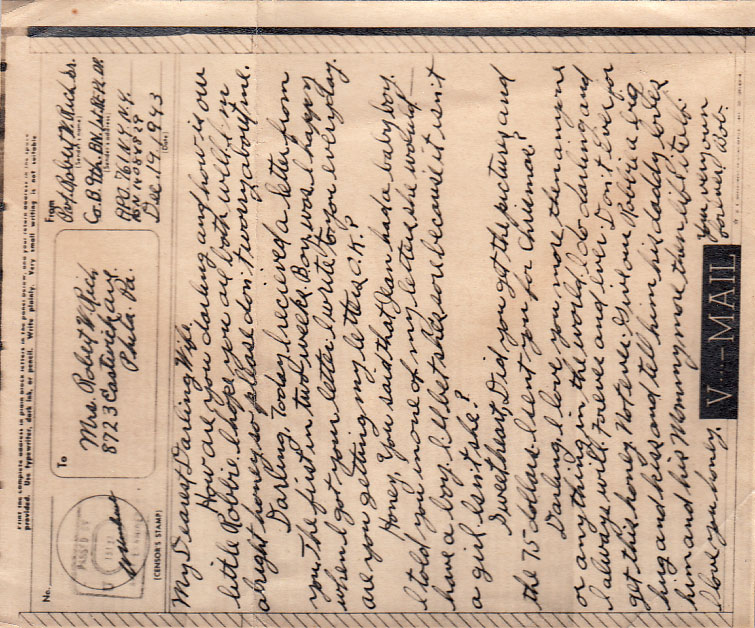 Print the complete address in plain block letters in the panel below, and your return address in the space
provided. Use typewriter, dark ink, or pencil. Write plainly. Very small writing is not suitable.
No.
(CENSOR'S STAMP)
To
Mrs. Robert W. Rich,
8723 Ave.
Phila. Pa.
From
Robert W. Rich Sr.
(Sender's name)
Co. B.
(Sender's address)
A.P.O. 761 N.Y. N.Y.
Dec. 19, 1943
(Date)
My Dearest Darling Wife,
How are you darling and how is our
little Robbie. I hope you are both well. I'm
alright honey so please don't worry about me.
Darling, Today I recieved a letter from
you. The first in two weeks. Boy was I happy
when I got your letter. I write to you everyday.
are you getting my letters O.K.?
Honey, You said that Jean had a baby boy.
I told you in one of my letters she would
have a boy. I'll bet she's sore because it isn't
a girl. Isn't she?
Sweetheart, Did you get the pictures and
the 75 dollars I sent you for Chrismas?
Darling, I love you more then anyone
or anything in the world. I do darling and
I always will. Forever and ever. Don't ever for
get this honey. Not ever. Give our Robbie a big
hug and kiss and tell him his daddy loves
him and his Mommy more then life itself.
I love you honey. Your very own
forever, Bob.
V···—MAIL